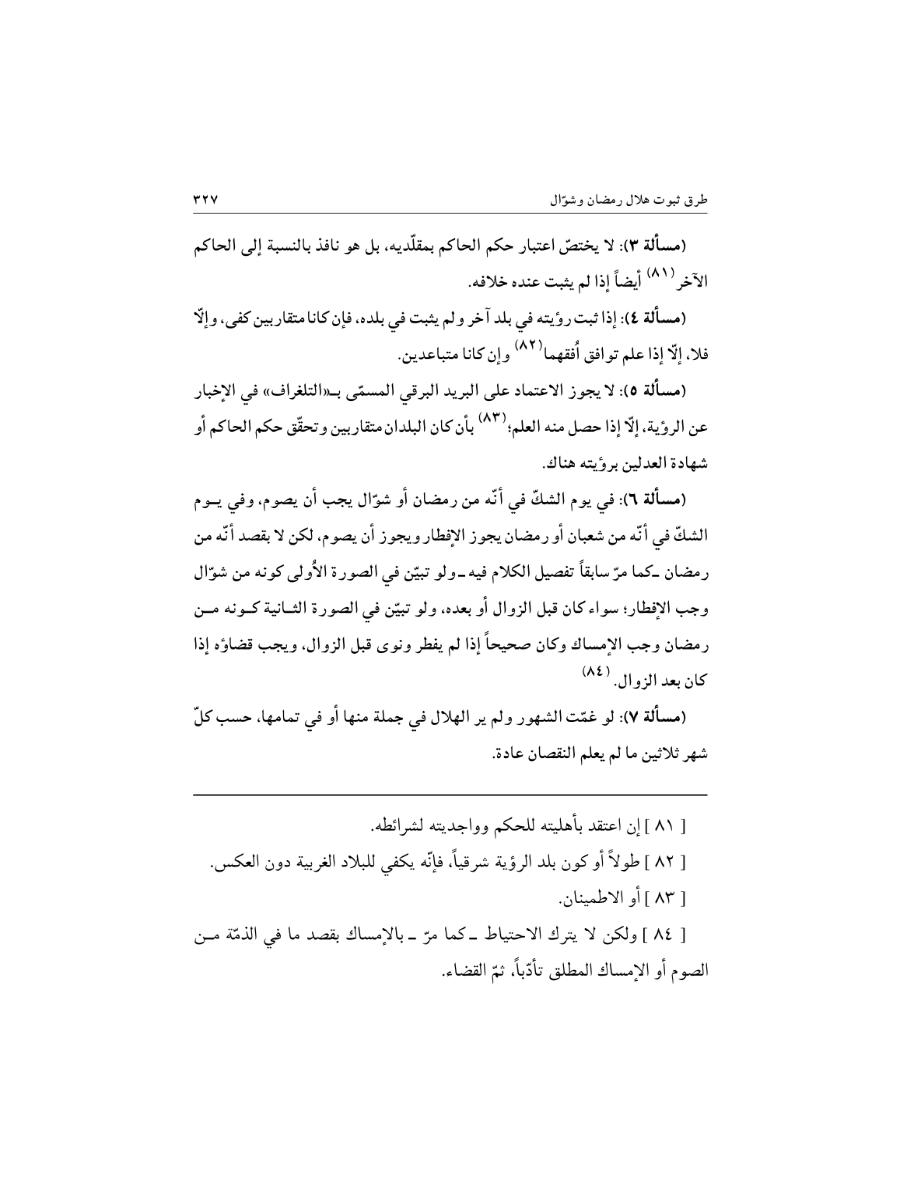 طرق ثبوت هلال رمضان وشوّال ٣٢٧
(مسألة ٣): لا يختصّ اعتبار حكم الحاكم بمقلّديه، بل هو نافذ بالنسبة إلى الحاكم
الآخر(٨١) أيضاً إذا لم يثبت عنده خلافه.
(مسألة ٤): إذا ثبت رؤيته في بلد آخر ولم يثبت في بلده، فإن كانا متقاربين كفى، وإلّا
فلا، إلّا إذا علم توافق اُفقهما(٨٢) وإن كانا متباعدين.
(مسألة ٥): لا يجوز الاعتماد على البريد البرقي المسمّى بـ«التلغراف» في الإخبار
عن الرؤية، إلّا إذا حصل منه العلم؛(٨٣) بأن كان البلدان متقاربين وتحقّق حكم الحاكم أو
شهادة العدلين برؤيته هناك.
(مسألة ٦): في يوم الشكّ في أنّه من رمضان أو شوّال يجب أن يصوم، وفي يـوم
الشكّ في أنّه من شعبان أو رمضان يجوز الإفطار ويجوز أن يصوم، لكن لا بقصد أنّه من
رمضان ـ كما مرّ سابقاً تفصيل الكلام فيه ـ ولو تبيّن في الصورة الاُولى كونه من شوّال
وجب الإفطار؛ سواء كان قبل الزوال أو بعده، ولو تبيّن في الصورة الثـانية كـونه مـن
رمضان وجب الإمساك وكان صحيحاً إذا لم يفطر ونوى قبل الزوال، ويجب قضاؤه إذا
كان بعد الزوال.(٨٤)
(مسألة ٧): لو غمّت الشهور ولم ير الهلال في جملة منها أو في تمامها، حسب كلّ
شهر ثلاثين ما لم يعلم النقصان عادة.
[ ٨١ ] إن اعتقد بأهليته للحكم وواجديته لشرائطه.
[ ٨٢ ] طولاً أو كون بلد الرؤية شرقياً، فإنّه يكفي للبلاد الغربية دون العكس.
[ ٨٣ ] أو الاطمينان.
[ ٨٤ ] ولكن لا يترك الاحتياط ـ كما مرّ ـ بالإمساك بقصد ما في الذمّة مـن
الصوم أو الإمساك المطلق تأدّباً، ثمّ القضاء.